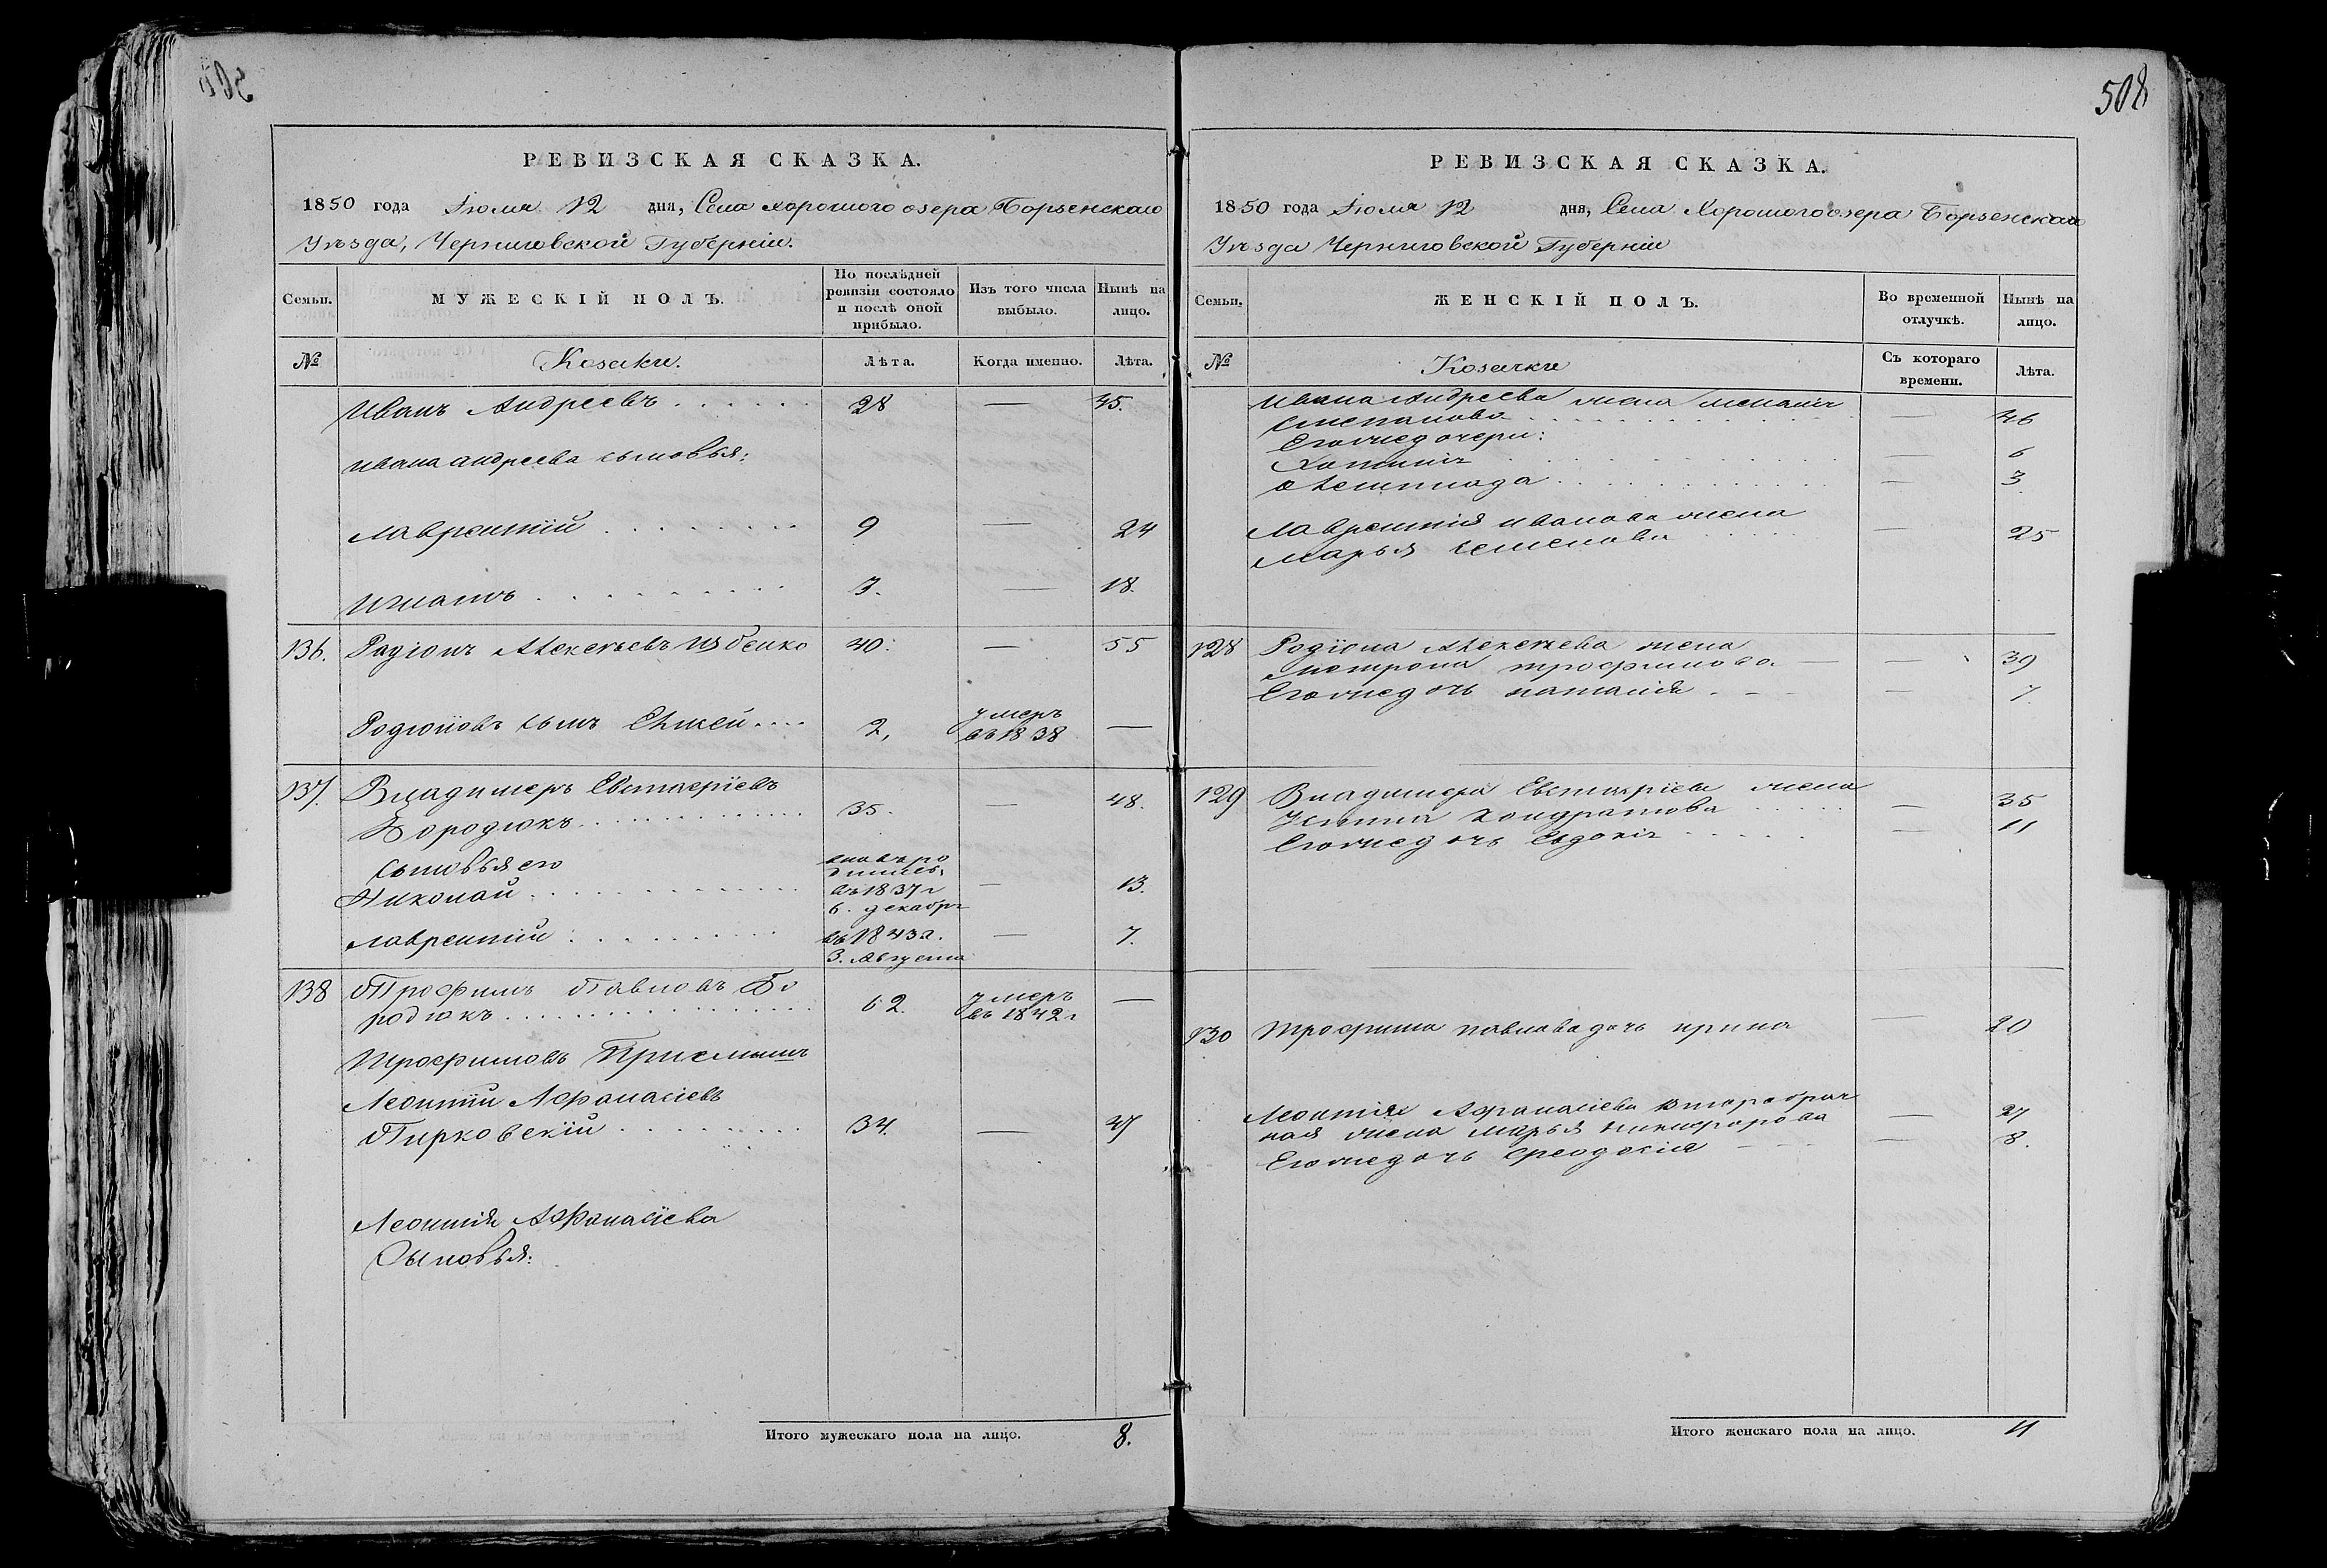 508
РЕВИЗСКАЯ СКАЗКА.
1850 года Іюля 12 дня, Села Хорошого озера Борзенскаго
Уѣзда, Черниговской Губерніи.
Семьи. МУЖЕСКІЙ ПОЛЪ. По послѣдней ревизіи состояло и послѣ оной прибыло. Изъ того числа выбыло. Нынѣ на лицо.
№ Козаки. Лѣта. Когда именно. Лѣта.
Иванъ Андреевъ 28 — 45.
Ивана андреева сыновья:
Лаврентій 9 — 24
Игнатъ 3. — 18.
136. Радіонъ Алексѣевъ 40. — 55
Родіоновъ сынъ 2, умеръ въ 1838 —
137. Владимеръ Евстаѳіевъ
Бородюкъ 35. — 48.
сыновья его
Николай вновь родился въ 1837 г 6. декабря — 13.
Лаврентій въ 1843 г. 3. Августа — 7.
138 Трофимъ Павловъ Бо
родюкъ 62. умеръ въ 1842 г —
Трофимовъ Приемышъ
Леонтій Афанасіевъ
Пирковскій 34. — 47
Леонтія Афанасіева
Сыновья:
Итого мужескаго пола на лицо. 8.
РЕВИЗСКАЯ СКАЗКА.
1850 года Іюля 12 дня, Села Хорошого озера Борзенскаго
Уѣзда Черниговской Губерніи
Семьи. ЖЕНСКІЙ ПОЛЪ. Во временной отлучкѣ. Нынѣ на лицо.
№ Козачки Съ котораго времени. Лѣта.
Ивана Андреева жена
Степанова — 46
Егожедочери:
— 6
— 3
Лаврентія иванова жена
Марья семенова — 25
128 Родіона Алексѣева жена
Мотрона трофимова — 39
Егожедочь наталія — 7.
129 Владимера Евстафіева жена
Устина Кондратова — 35
Егожедочь Евдокія — 11
130 Трофима павловадочь ирина — 20
Леонтія Афанасіева второбрач
ная жена Марья никифорова — 27
Егожедочь феодосія — 8.
Итого женскаго пола на лицо. 11